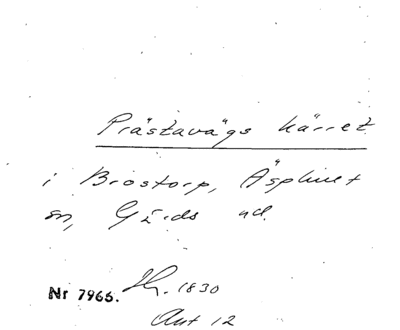 Prästavägs kärret
i Brostorp, Äsphult
sn, Gärds hd.
Nr 7966. 1830
Akt 12